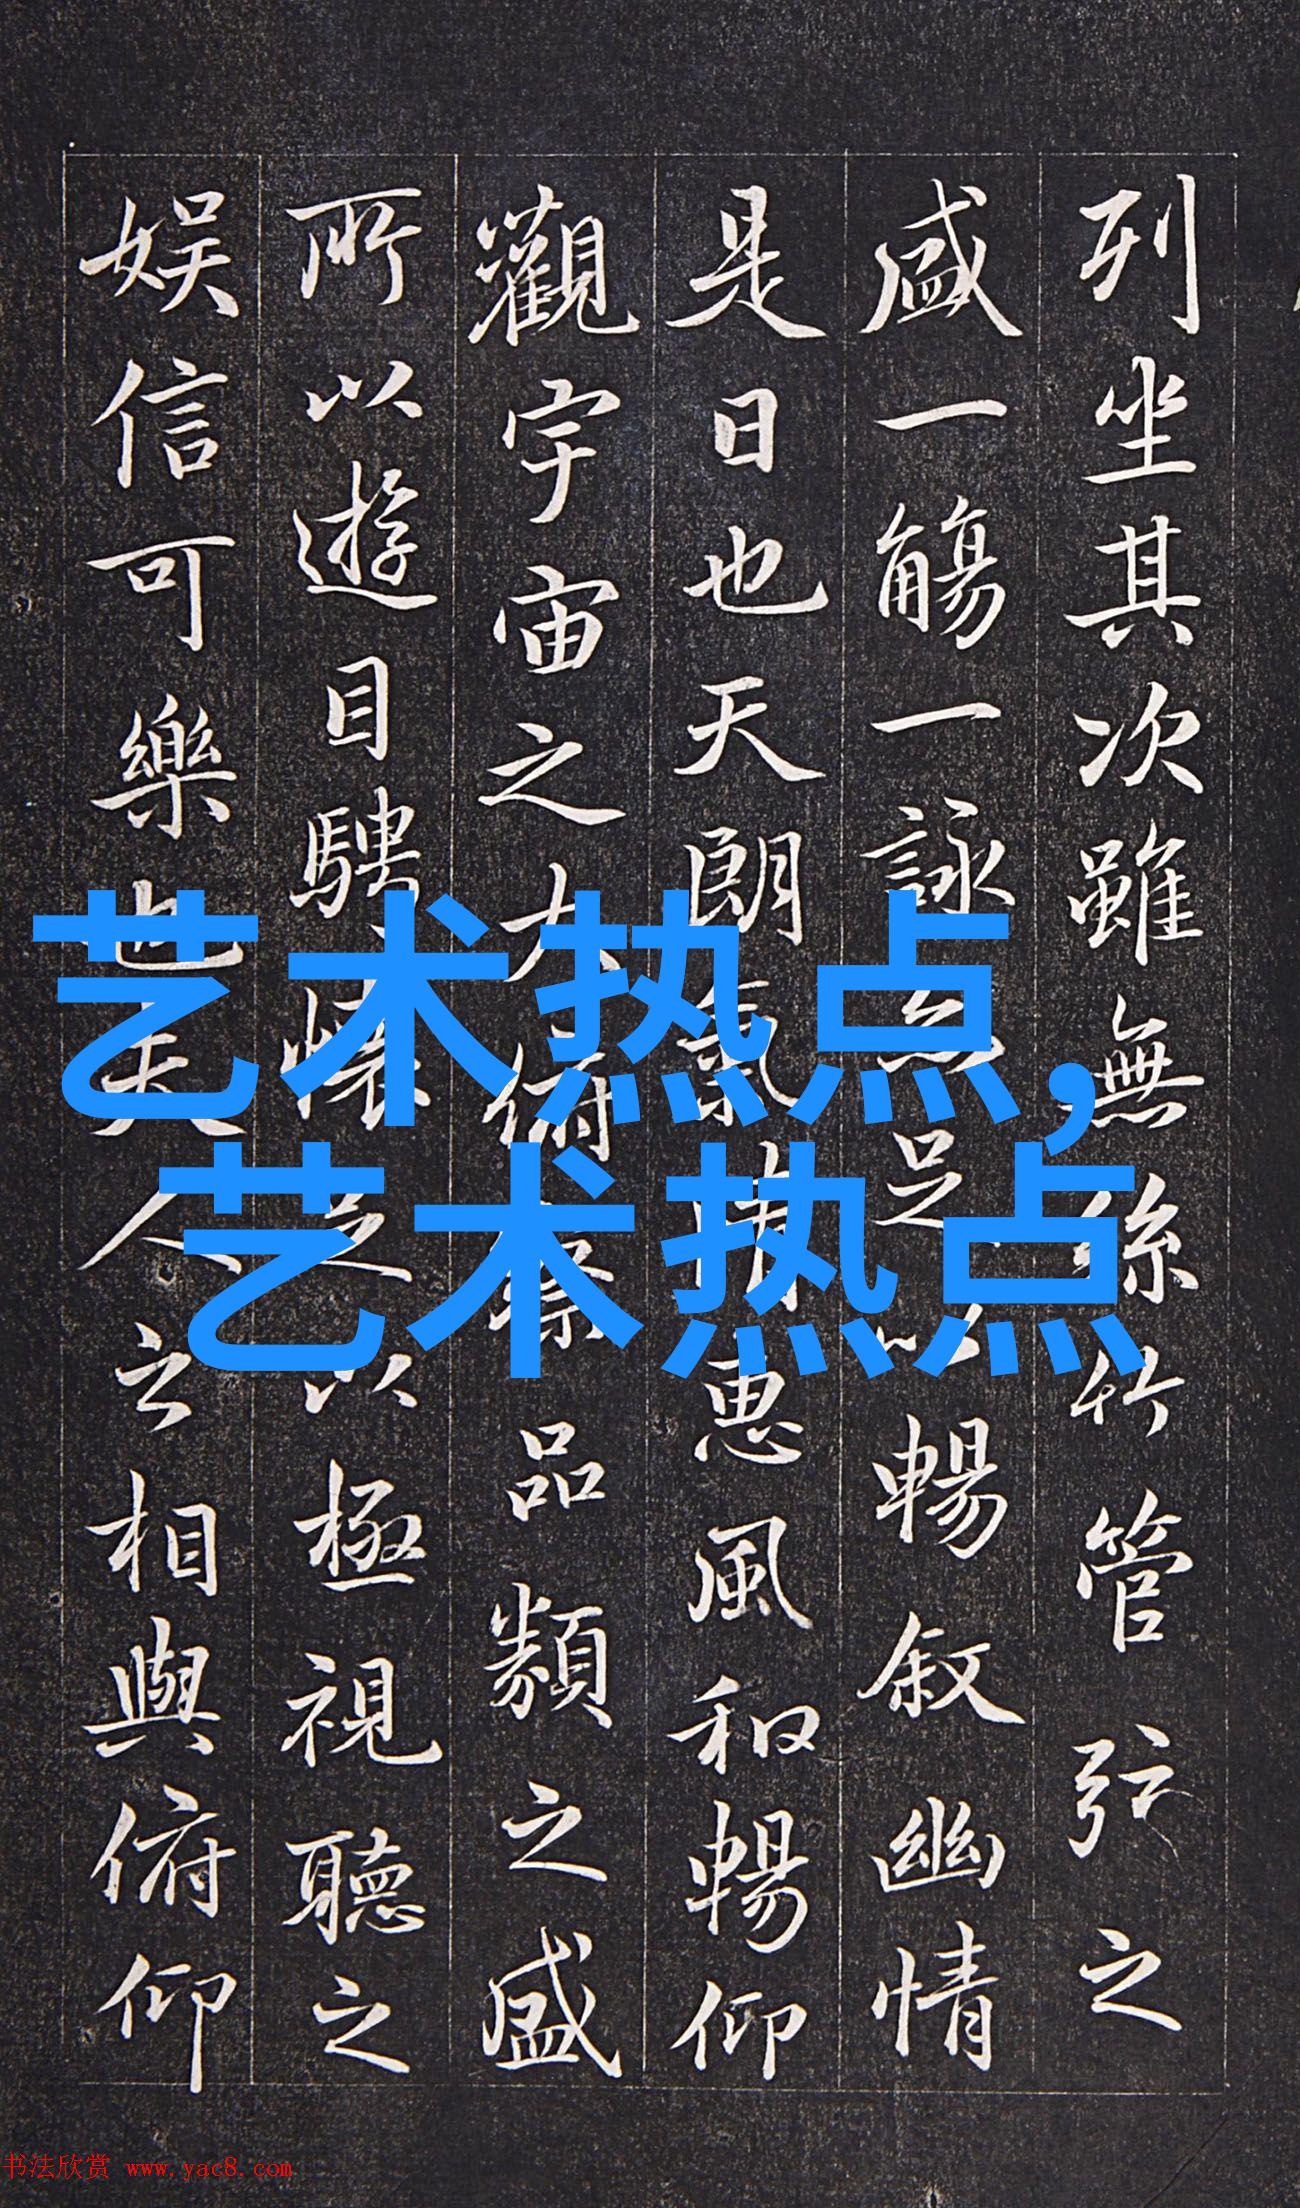 列坐其次雖無絲竹管弦之
盛一觴一詠亦足以暢敘幽情
是日也天朗氣清惠風和暢仰
觀宇宙之大俯察品類之盛
所以遊目騁懷足以極視聽之
娛信可樂也夫人之相與俯仰
艺术热点,
艺术热点
书法欣赏 www.yac8.com